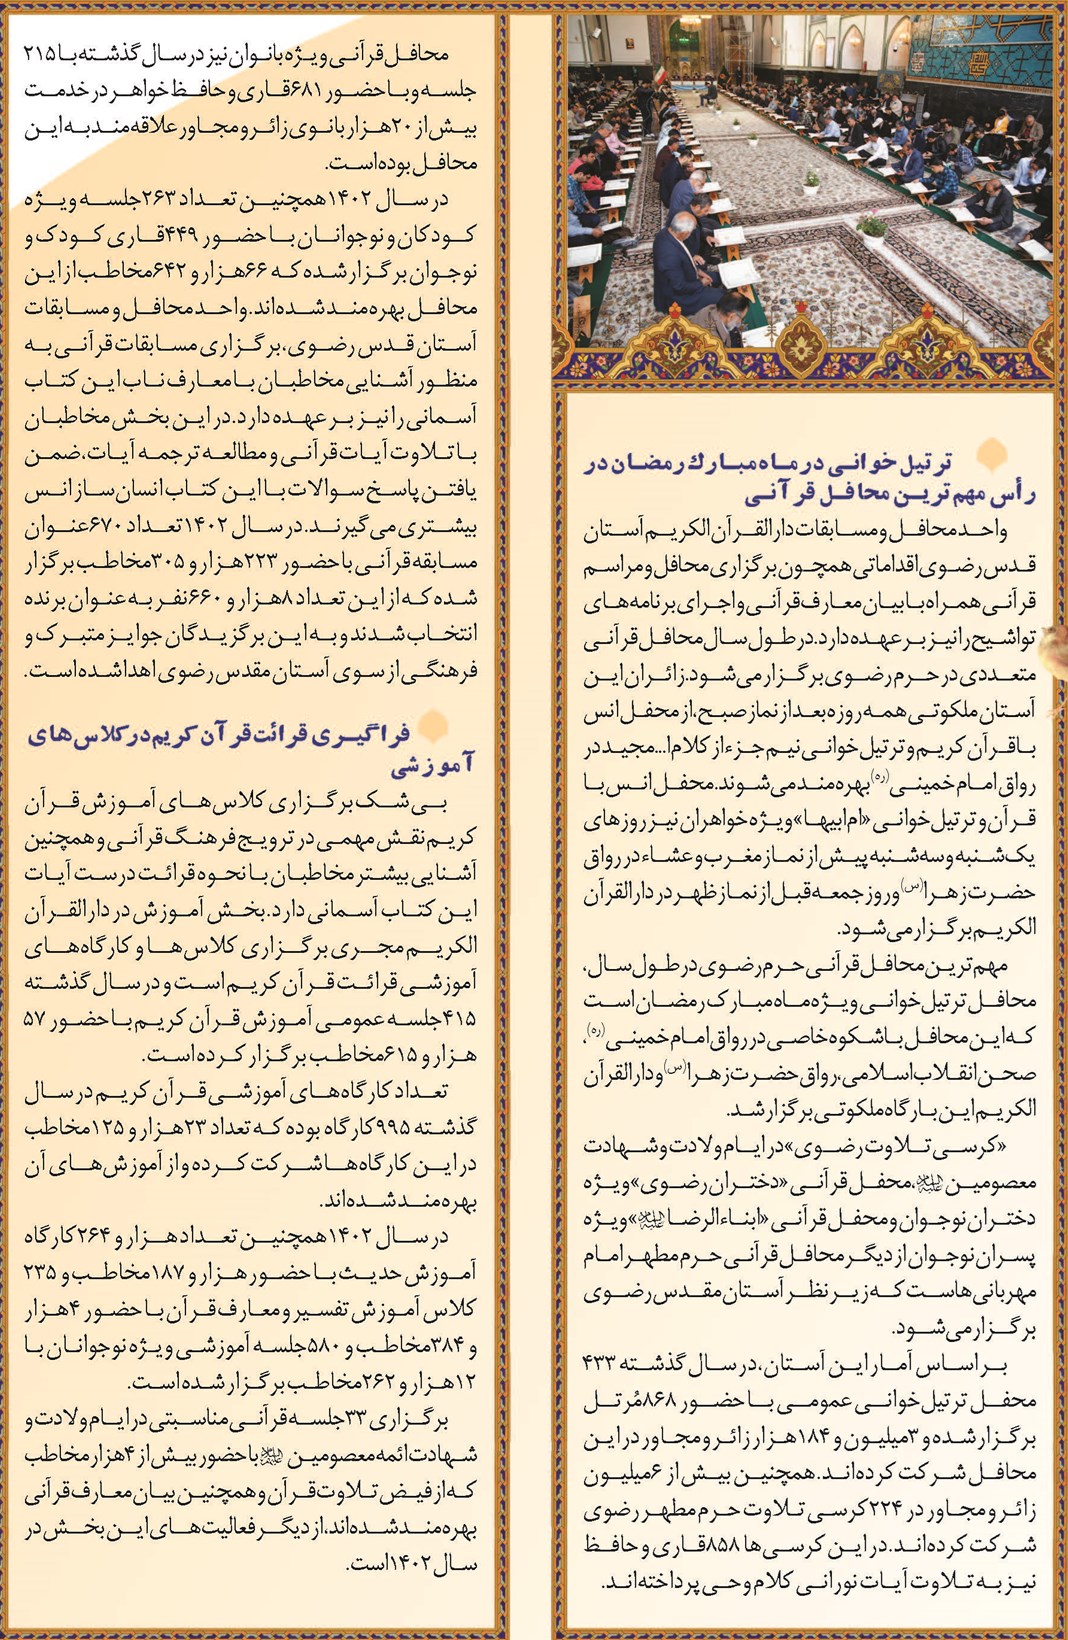 ترتیل خوانی در ماه مبارک رمضان در
رأس مهم ترین محافل قرآنی
واحد محافل و مسابقات دارالقرآن الکریم آستان
قدس رضوی اقداماتی همچون برگزاری محافل و مراسم
قرآنی همراه با بیان معارف قرآنی و اجرای برنامه‌های
تواشیح را نیز بر عهده دارد. در طول سال محافل قرآنی
متعددی در حرم رضوی برگزار می‌شود. زائران این
آستان ملکوتی همه روزه بعد از نماز صبح، از محفل انس
با قرآن کریم و ترتیل خوانی نیم جزء از کلام ا... مجید در
رواق امام خمینی(ره) بهره‌مند می‌شوند. محفل انس با
قرآن و ترتیل خوانی «ام ابیها» ویژه خواهران نیز روزهای
یک‌شنبه و سه‌شنبه پیش از نماز مغرب و عشاء در رواق
حضرت زهرا(س) و روز جمعه قبل از نماز ظهر در دارالقرآن
الکریم برگزار می‌شود.
مهم ترین محافل قرآنی حرم رضوی در طول سال،
محافل ترتیل خوانی ویژه ماه مبارک رمضان است
که این محافل با شکوه خاصی در رواق امام خمینی(ره)،
صحن انقلاب اسلامی، رواق حضرت زهرا(س) و دارالقرآن
الکریم این بارگاه ملکوتی برگزار شد.
«کرسی تلاوت رضوی» در ایام ولادت و شهادت
معصومین علیهم‌السلام، محفل قرآنی «دختران رضوی» ویژه
دختران نوجوان و محفل قرآنی «ابناء الرضا علیه‌السلام» ویژه
پسران نوجوان از دیگر محافل قرآنی حرم مطهر امام
مهربانی‌هاست که زیر نظر آستان مقدس رضوی
برگزار می‌شود.
بر اساس آمار این آستان، در سال گذشته ۴۳۳
محفل ترتیل خوانی عمومی با حضور ۸۶۸ مُرتل
برگزار شده و ۳میلیون و ۱۸۴ هزار زائر و مجاور در این
محافل شرکت کرده‌اند. همچنین بیش از ۶میلیون
زائر و مجاور در ۲۲۴ کرسی تلاوت حرم مطهر رضوی
شرکت کرده‌اند. در این کرسی‌ها ۸۵۸ قاری و حافظ
نیز به تلاوت آیات نورانی کلام وحی پرداخته‌اند.
محافل قرآنی ویژه بانوان نیز در سال گذشته با ۲۱۵
جلسه و با حضور ۶۸۱ قاری و حافظ خواهر در خدمت
بیش از ۲۰ هزار بانوی زائر و مجاور علاقه‌مند به این
محافل بوده است.
در سال ۱۴۰۲ همچنین تعداد ۲۶۳ جلسه ویژه
کودکان و نوجوانان با حضور ۴۴۹ قاری کودک و
نوجوان برگزار شده که ۶۶ هزار و ۶۴۲ مخاطب از این
محافل بهره‌مند شده‌اند. واحد محافل و مسابقات
آستان قدس رضوی، برگزاری مسابقات قرآنی به
منظور آشنایی مخاطبان با معارف ناب این کتاب
آسمانی را نیز بر عهده دارد. در این بخش مخاطبان
با تلاوت آیات قرآنی و مطالعه ترجمه آیات، ضمن
یافتن پاسخ سوالات با این کتاب انسان ساز انس
بیشتری می‌گیرند. در سال ۱۴۰۲ تعداد ۶۷۰ عنوان
مسابقه قرآنی با حضور ۲۲۳ هزار و ۳۰۵ مخاطب برگزار
شده که از این تعداد ۸ هزار و ۶۶۰ نفر به عنوان برنده
انتخاب شدند و به این برگزیدگان جوایز متبرک و
فرهنگی از سوی آستان مقدس رضوی اهدا شده است.
فراگیری قرائت قرآن کریم در کلاس های
آموزشی
بی شک برگزاری کلاس‌های آموزش قرآن
کریم نقش مهمی در ترویج فرهنگ قرآنی و همچنین
آشنایی بیشتر مخاطبان با نحوه قرائت درست آیات
این کتاب آسمانی دارد. بخش آموزش در دارالقرآن
الکریم مجری برگزاری کلاس‌ها و کارگاه‌های
آموزشی قرائت قرآن کریم است و در سال گذشته
۴۱۵ جلسه عمومی آموزش قرآن کریم با حضور ۵۷
هزار و ۶۱۵ مخاطب برگزار کرده است.
تعداد کارگاه‌های آموزشی قرآن کریم در سال
گذشته ۹۹۵ کارگاه بوده که تعداد ۲۳ هزار و ۱۲۵ مخاطب
در این کارگاه‌ها شرکت کرده و از آموزش‌های آن
بهره‌مند شده‌اند.
در سال ۱۴۰۲ همچنین تعداد هزار و ۲۶۴ کارگاه
آموزش حدیث با حضور هزار و ۱۸۷ مخاطب و ۲۳۵
کلاس آموزش تفسیر و معارف قرآن با حضور ۴ هزار
و ۳۸۴ مخاطب و ۵۸۰ جلسه آموزشی ویژه نوجوانان با
۱۲ هزار و ۲۶۲ مخاطب برگزار شده است.
برگزاری ۳۳ جلسه قرآنی مناسبتی در ایام ولادت و
شهادت ائمه معصومین علیهم‌السلام با حضور بیش از ۴ هزار مخاطب
که از فیض تلاوت قرآن و همچنین بیان معارف قرآنی
بهره‌مند شده‌اند، از دیگر فعالیت‌های این بخش در
سال ۱۴۰۲ است.